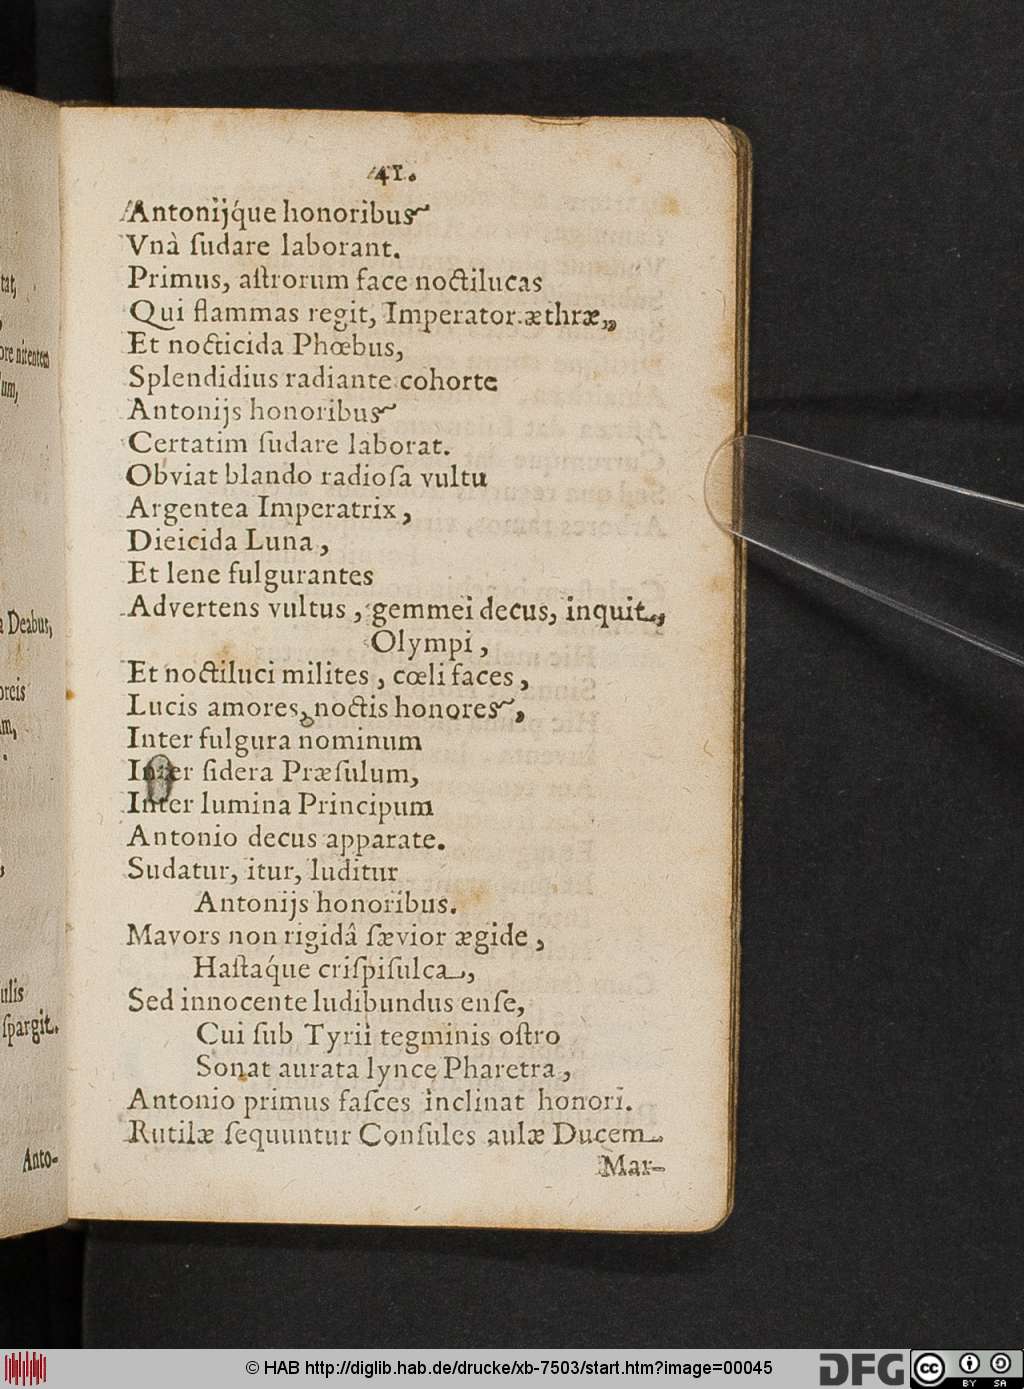 41.
Antonijq́ue honoribus
Vnà ſudare laborant.
Primus, aſtrorum face noctilucas
Qui flammas regit, Imperator æthræ,
Et nocticida Phœbus,
Splendidius radiante cohorte
Antonijs honoribus
Certatim ſudare laborat.
Obviat blando radioſa vultu
Argentea Imperatrix,
Dieicida Luna,
Et lene fulgurantes
Advertens vultus, gemmei decus, inquit,
Olympi,
Et noctiluci milites, cœli faces,
Lucis amores, noctis honores,
Inter fulgura nominum
Inter ſidera Præſulum,
Inter lumina Principum
Antonio decus apparate.
Sudatur, itur, luditur
Antonijs honoribus.
Mavors non rigidâ ſævior ægide,
Haſtaq́ue criſpiſulca,
Sed innocente ludibundus enſe,
Cui ſub Tyrii tegminis oſtro
Sonat aurata lynce Pharetra,
Antonio primus faſces inclinat honori.
Rutilæ ſequuntur Conſules aulæ Ducem
Mar-
tat,
ore nitentem
lum,
a Deabus,
oreis
m,
ulis
ſpargit.
Anto-
© HAB http://diglib.hab.de/drucke/xb-7503/start.htm?image=00045
DFG
cc
BY SA